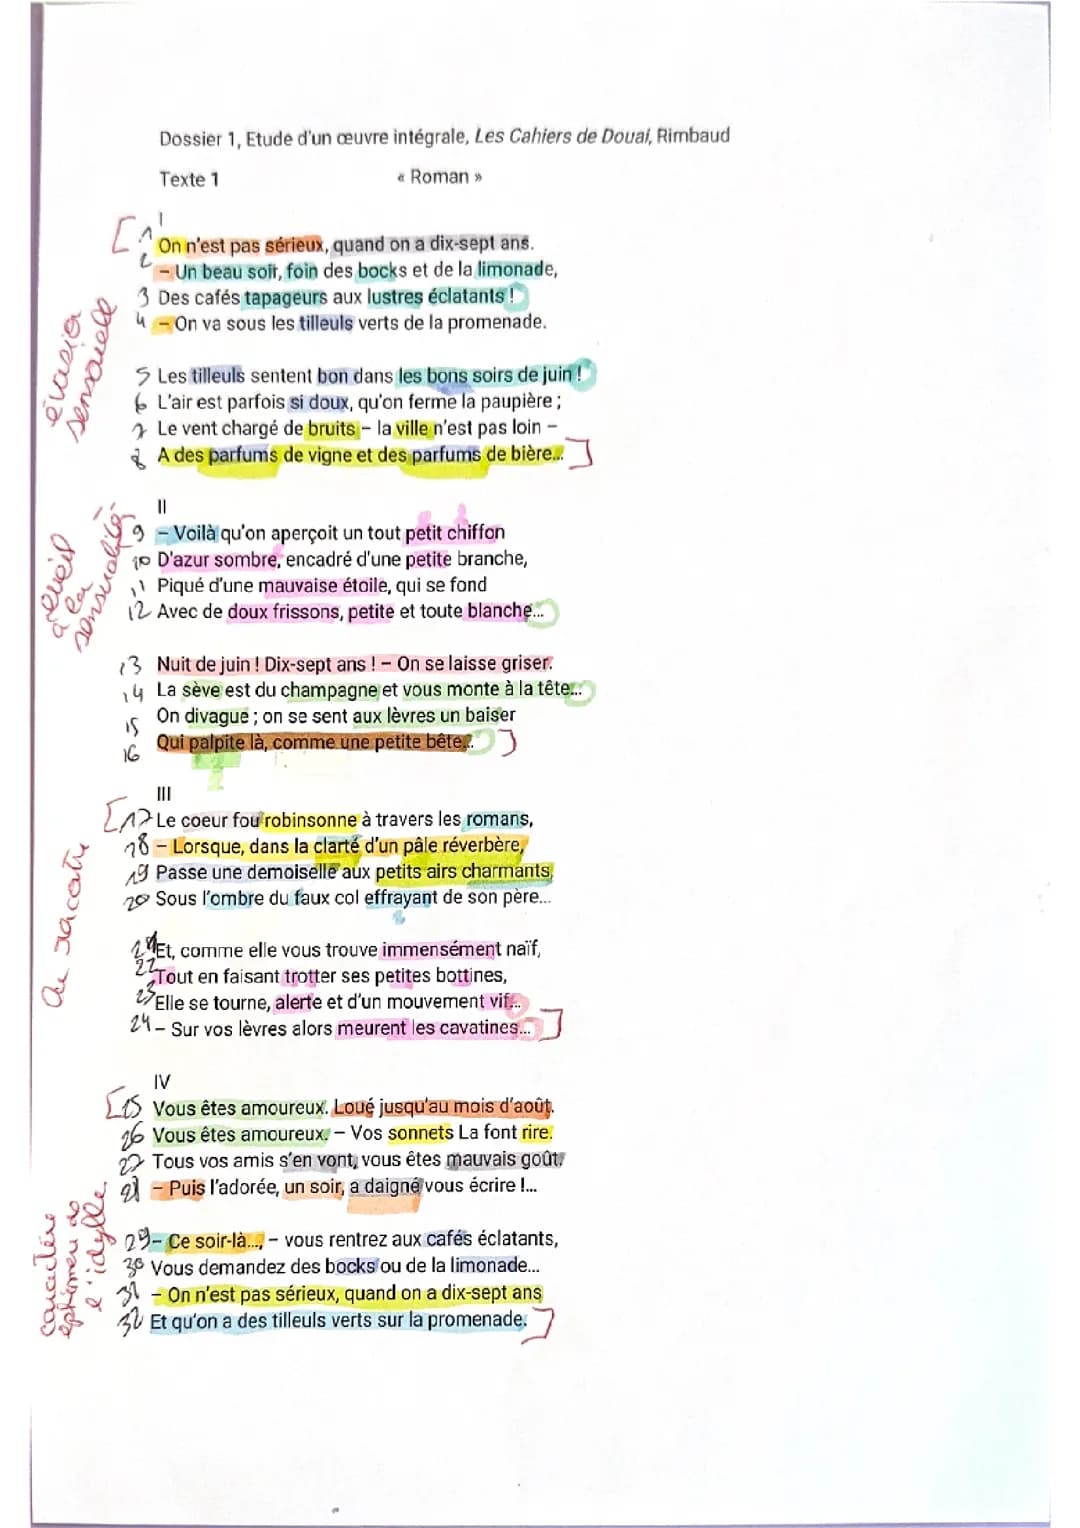 Dossier 1, Etude d'un œuvre intégrale, Les Cahiers de Douai, Rimbaud
Texte 1
« Roman »
I
1 On n'est pas sérieux, quand on a dix-sept ans.
2 – Un beau soir, foin des bocks et de la limonade,
3 Des cafés tapageurs aux lustres éclatants !
4 – On va sous les tilleuls verts de la promenade.
évasion sensorielle
5 Les tilleuls sentent bon dans les bons soirs de juin !
6 L'air est parfois si doux, qu'on ferme la paupière ;
7 Le vent chargé de bruits – la ville n'est pas loin –
8 A des parfums de vigne et des parfums de bière...
II
9 – Voilà qu'on aperçoit un tout petit chiffon
10 D'azur sombre, encadré d'une petite branche,
11 Piqué d'une mauvaise étoile, qui se fond
12 Avec de doux frissons, petite et toute blanche...
à la sensualité
13 Nuit de juin ! Dix-sept ans ! – On se laisse griser.
14 La sève est du champagne et vous monte à la tête...
15 On divague ; on se sent aux lèvres un baiser
16 Qui palpite là, comme une petite bête...
III
17 Le coeur fou robinsonne à travers les romans,
18 – Lorsque, dans la clarté d'un pâle réverbère,
19 Passe une demoiselle aux petits airs charmants,
20 Sous l'ombre du faux col effrayant de son père...
21 Et, comme elle vous trouve immensément naïf,
22 Tout en faisant trotter ses petites bottines,
23 Elle se tourne, alerte et d'un mouvement vif...
24 – Sur vos lèvres alors meurent les cavatines...
IV
25 Vous êtes amoureux. Loué jusqu'au mois d'août.
26 Vous êtes amoureux. – Vos sonnets La font rire.
27 Tous vos amis s'en vont, vous êtes mauvais goût.
28 – Puis l'adorée, un soir, a daigné vous écrire !...
caractère éphémère de l'idylle
29 – Ce soir-là..., – vous rentrez aux cafés éclatants,
30 Vous demandez des bocks ou de la limonade...
31 – On n'est pas sérieux, quand on a dix-sept ans
32 Et qu'on a des tilleuls verts sur la promenade.